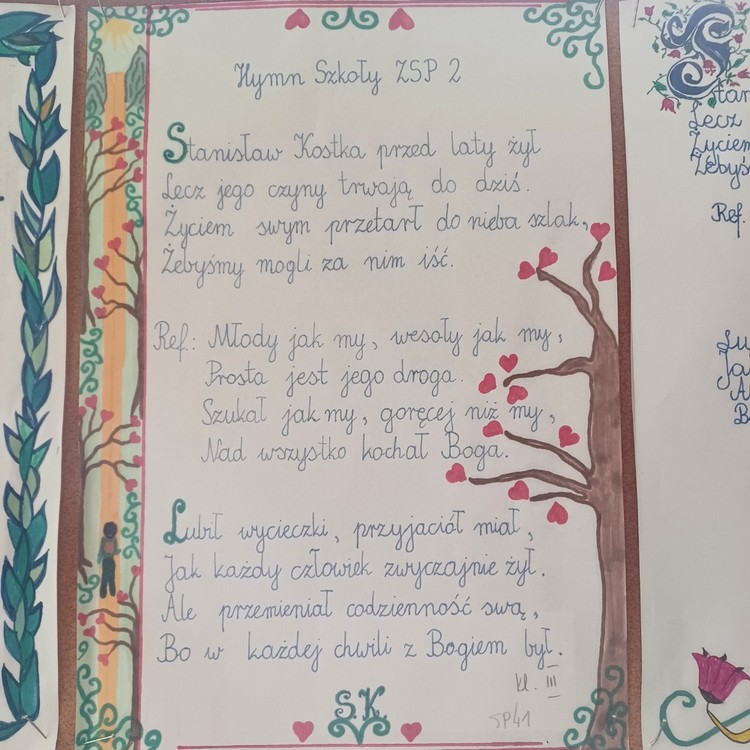 Hymn Szkoły ZSP 2
Stanisław Kostka przed laty żył
Lecz jego czyny trwają do dziś.
Życiem swym przetarł do nieba szlak,
Żebyśmy mogli za nim iść.
Ref.: Młody jak my, wesoły jak my,
Prosta jest jego droga.
Szukał jak my, goręcej niż my,
Nad wszystko kochał Boga.
Lubił wycieczki, przyjaciół miał,
Jak każdy człowiek zwyczajnie żył.
Ale przemieniał codzienność swą,
Bo w każdej chwili z Bogiem był.
kl. III
SP41
S.K.
Stan
Lecz
Życiem
Żebyś
Ref.
Lu
Ja
A
B